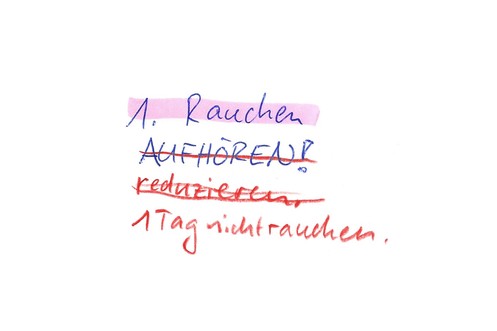 1. Rauchen
AUFHÖREN!
reduzieren.
1 Tag nicht rauchen.